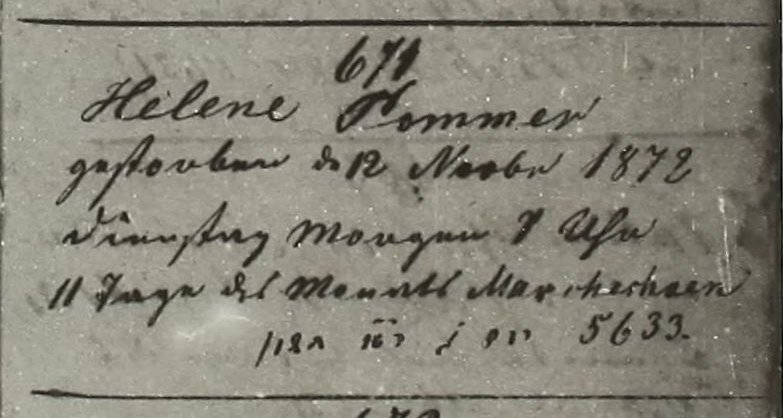 671
Helene Pommer
gestorben d 12 Novbr 1872
Dienstag Morgen Uhr
11 Tage des Monats Marcheschwen
5633.